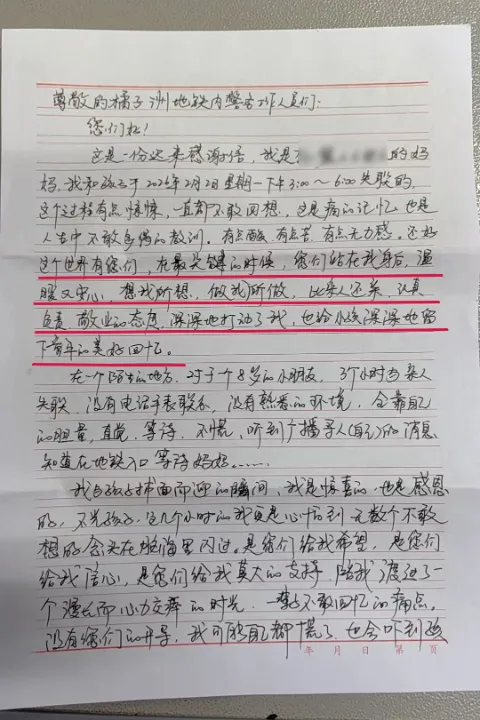 尊敬的橘子洲地铁内警务工作人员们:
您们好!
这是一份迟来感谢信,我是 的妈
妈,我和孩子于2026年2月2日星期一下午3:00~6:00失联的,
这个过程有点惊悚,一直都不敢回想,这是痛的记忆也是
人生中不敢多得的教训。有点酸,有点苦,有点无力感。还好
这个世界有您们,在最关键的时候,您们站在我身后,温
暖又安心,想我所想,做我所做,比亲人还亲,认真
负责,敬业的态度,深深地打动了我,也给小孩深深地留
下童年的美好回忆。
在一个陌生的地方,对于一个8岁的小朋友,3个小时与亲人
失联,没有电话手表联系,没有熟悉的环境,全靠自己
的胆量,直觉,等待,不慌,听到广播寻人(自己)的消息
知道在地铁入口等待妈妈……
我与孩子扑面而迎的瞬间,我是惊喜的,也是感恩
的,不光孩子,这几个小时的我更是心情到无数个不敢
想的念头在脑海里闪过。是您们给我希望,是您们
给我信心,是您们给我莫大的支持,陪我渡过了一
个漫长而心力交瘁的时光,一辈子不敢回忆的痛点。
没有您们的开导,我可能自己都慌了,也会吓到孩
年 月 日 第 页